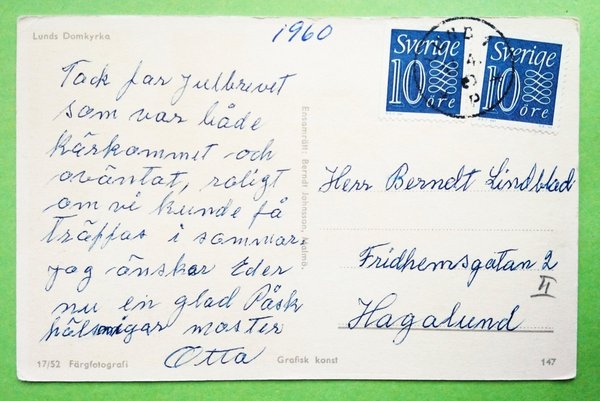 Lunds Domkyrka
1960
Sverige
10 öre
Sverige
10 öre
Tack for julbrevet
som var både
kärkommet och
oväntat, roligt
om vi kunde få
träffas i sommar,
jag önskar Eder
nu en glad Påsk
hälsnigar moster
Otta
Ensamrätt: Berndt Johnsson, Malmö.
Herr Berndt Lindblad
Fridhemsgatan 2
II
Hagalund
17/52 Färgfotografi
Grafisk konst
147